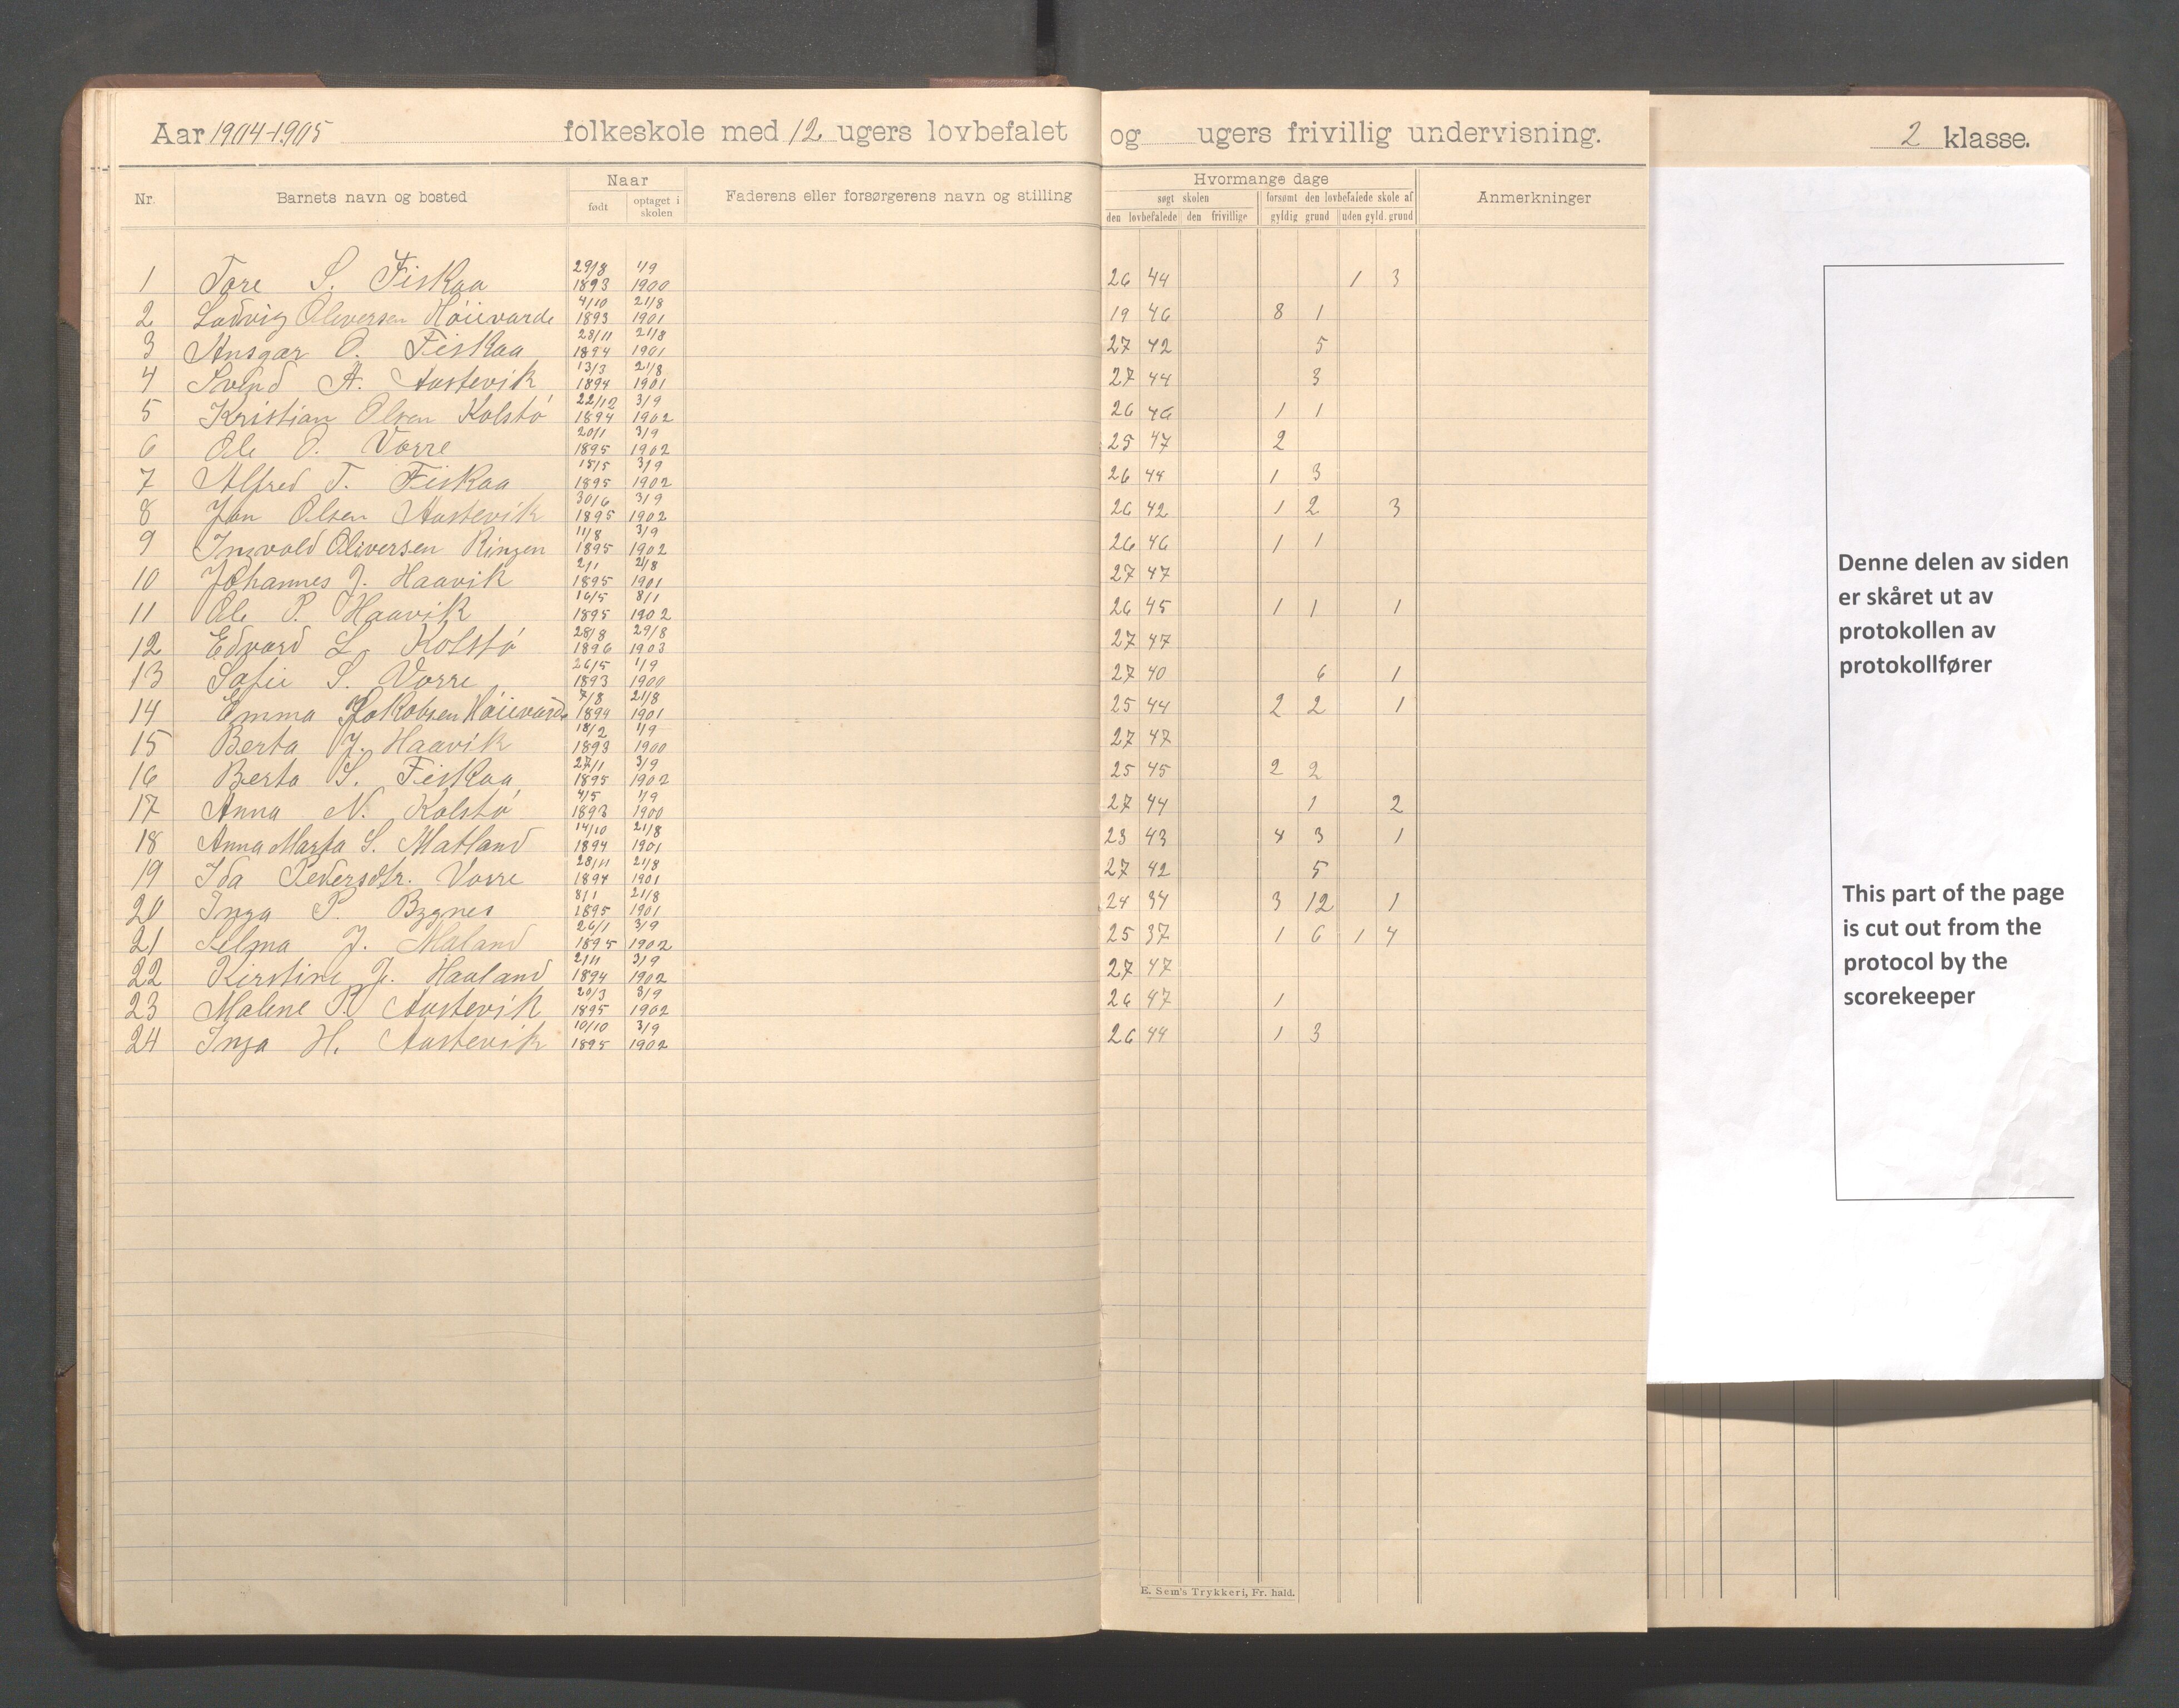 Aar 1904-1905 folkeskole med 12 ugers lovbefalet og ugers frivillig undervisning. 2 klasse.
Nr. Barnets navn og bosted Naar født optaget i skolen Faderens eller forsørgerens navn og stilling Hvormange dage søgt skolen den lovbefalede den frivillige forsømt den lovbefalede skole af gyldig grund uden gyld. grund Anmerkninger
1 Tore S. Fiskaa 29/8 1893 1/9 1900 26 44 1 3
2 Ludvig Oliversen Höievarde 4/10 1893 21/8 1901 19 46 8 1
3 Ansgar O. Fiskaa 28/11 1894 21/8 1901 27 42 5
4 Svend A. Austevik 13/3 1894 21/8 1901 27 44 3
5 Kristian Olsen Kolstö 22/12 1894 3/9 1902 26 46 1 1
6 Ole O. Vorre 20/1 1895 3/9 1902 25 47 2
7 Alfred T. Fiskaa 15/5 1895 3/9 1902 26 44 1 3
8 Jon Olsen Austevik 30/6 1895 3/9 1902 26 42 1 2 3
9 Ingvald Oliversen Ringen 11/8 1895 3/9 1902 26 46 1 1
10 Johannes J. Haavik 2/1 1895 21/8 1901 27 47
11 Ole P. Haavik 16/5 1895 8/1 1902 26 45 1 1 1
12 Edvard L. Kolstö 28/8 1896 29/8 1903 27 47
13 Sofie S. Vorre 26/5 1893 1/9 1900 27 40 6 1
14 Emma Jakobsen Höievarde 7/8 1894 21/8 1901 25 44 2 2 1
15 Berta J. Haavik 18/2 1893 1/9 1900 27 47
16 Berta S. Fiskaa 27/1 1895 3/9 1902 25 45 2 2
17 Anna N. Kolstö 4/5 1893 1/9 1900 27 44 1 2
18 Anna Marta S. Matland 14/10 1894 21/8 1901 23 43 4 3 1
19 Ida Pedersdtr. Vorre 28/11 1894 21/8 1901 27 42 5
20 Inga P. Bygnes 8/1 1895 21/8 1901 24 34 3 12 1
21 Selma J. Maland 26/1 1895 3/9 1902 25 37 1 6 1 4
22 Kirstine J. Hauland 2/11 1894 3/9 1902 27 47
23 Malene P. Austevik 20/3 1895 3/9 1902 26 47 1
24 Inga H. Austevik 10/10 1895 3/9 1902 26 44 1 3
E. Sem's Trykkeri, Fr. hald.
Denne delen av siden
er skåret ut av
protokollen av
protokollfører
This part of the page
is cut out from the
protocol by the
scorekeeper